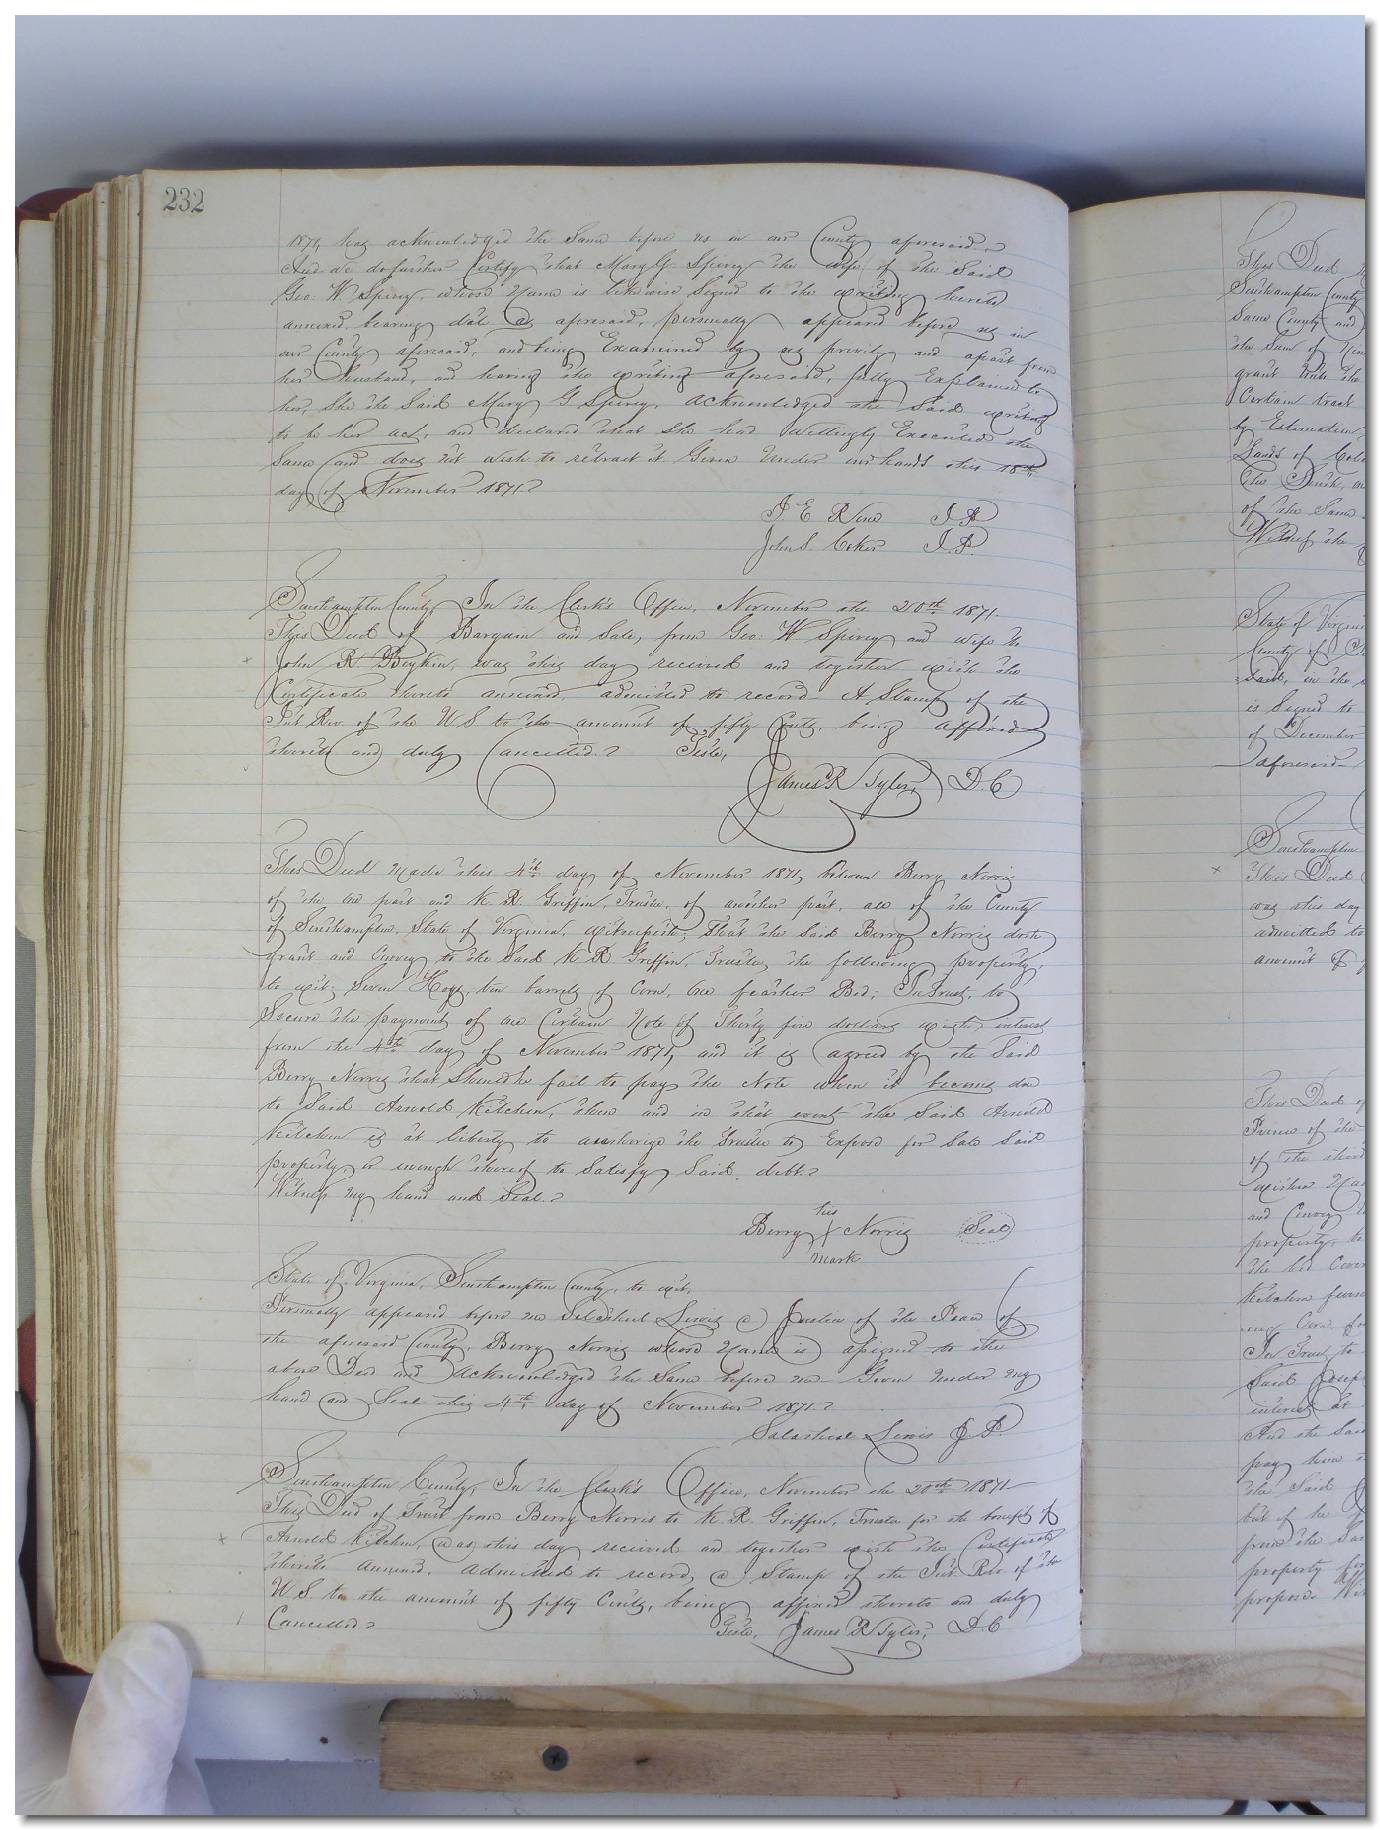 232
1871, has acknowledged the Same before us in our County aforesaid.
And we do further Certify that Mary G. Spivey the wife of the Said
Geo. W. Spivey, whose Name is likewise Signed to the writing hereto
annexed, bearing date as aforesaid, personally appeared before us in
our County aforesaid, and being Examined by us privily and apart from
her husband, and having the writing aforesaid, fully Explained to
her, She the Said Mary G. Spivey, acknowledged the Said writing
to be her act, and declared that She had Willingly Executed the
Same and does not wish to retract it. Given Under our hands this 18th
day of November 1871.
J. E. J.P.
John S. Coker J.P.
Southampton County, In the Clerk's Office, November the 20th 1871.
This Deed of Bargain and Sale, from Geo: W Spivey and wife to
x John R Boykin, was this day received and together with the
Certificate thereto annexed admitted to record. A Stamp of the
Int. Rev. of the U S to the amount of fifty Cents, being affixed
thereto and duly Cancelled. Teste,
James R Tyler, D.C
This Deed Made this 4th day of November 1871, between Berry Norris
of the one part and K. R. Griffin, Trustee, of another part, all of the County
of Southampton, State of Virginia, witnesseth; That the Said Berry Norris doth
grant and Convey to the Said K R Griffin, Trustee, the following property,
to wit; Seven Hogs, ten barrels of Corn, One feather Bed; In Trust, to
Secure the payment of one Certain Note of Thirty five dollars with interest
from the 4th day of November 1871, and it is agreed by the Said
Berry Norris that Should he fail to pay the Note when it becomes due
to Said Arnold Kitchen, then and in that event the Said Arnold
Kitchen is at liberty to authorize the Trustee to Expose for Sale Said
property or enough thereof to Satisfy Said debt.
Witness my hand and Seal.
his
Berry X Norris Seal
mark
State of Virginia, Southampton County, to wit,
Personally appeared before me Salathiel Lewis a Justice of the Peace of
the aforesaid County, Berry Norris whose Name is assigned to the
above Deed and acknowledged the Same before me Given Under my
hand and Seal this 4th day of November 1871.
Salathiel Lewis J.P.
Southampton County, In the Clerk's Office, November the 20th 1871
This Deed of Trust from Berry Norris to K. R. Griffin, Trustee for the benefit of
x Arnold Kitchen, was this day received and together with the Certificate
thereto annexed, admitted to record, a Stamp of the Int. Rev. of the
U.S. to the amount of fifty Cents, being affixed thereto and duly
Cancelled Teste, James R Tyler, D.C
This Deed
Southampton County
Same County and
the Sum of
grant Unto the
Certain tract
by Estimation
Lands of
the South,
of the Same
Witness the
State of Virginia
County of
said, in the
is Signed to
of December
aforesaid
Southampton
x This Deed
was this day
admitted to
amount of
This Deed
of the
of the
and Convey
property, to
Kitchen
Corn
In Trust to
Said
interest
And the Said
pay
the Said
but if he
from the
property for